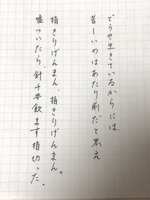 どうせ生きているからには
苦しいのはあたり前だと思え
指きりげんまん、指きりげんまん。
嘘ついたり、針千本飲ます指切った。